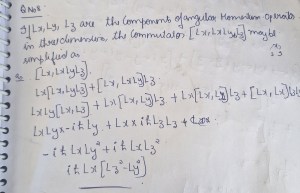 Q No 8
If Lx, Ly, Lz are the Component of angular Momentum Operator
in three dimension the Commutator [Lx, LxLyLz] may be
simplified as
[Lx, LxLyLz].
Lx[Lx, LyLz] + [Lx, Lx]LyLz
LxLy[Lx, Lz] + Lx[Lx, Ly]Lz +
LxLyx-iħLy + Lx x iħLzLz +
-iħLxLy² + iħLxLz²
iħLx[Lz²-Ly²]